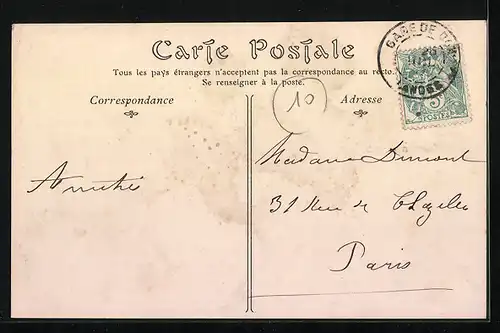 Carte Postale
Tous les pays étrangers n'acceptent pas la correspondance au recto.
Se renseigner à la poste.
Correspondance
Adresse
10
GARE DE
5
POSTES
Madame Dumont
Amitié
31 Rue de Chazelles
Paris